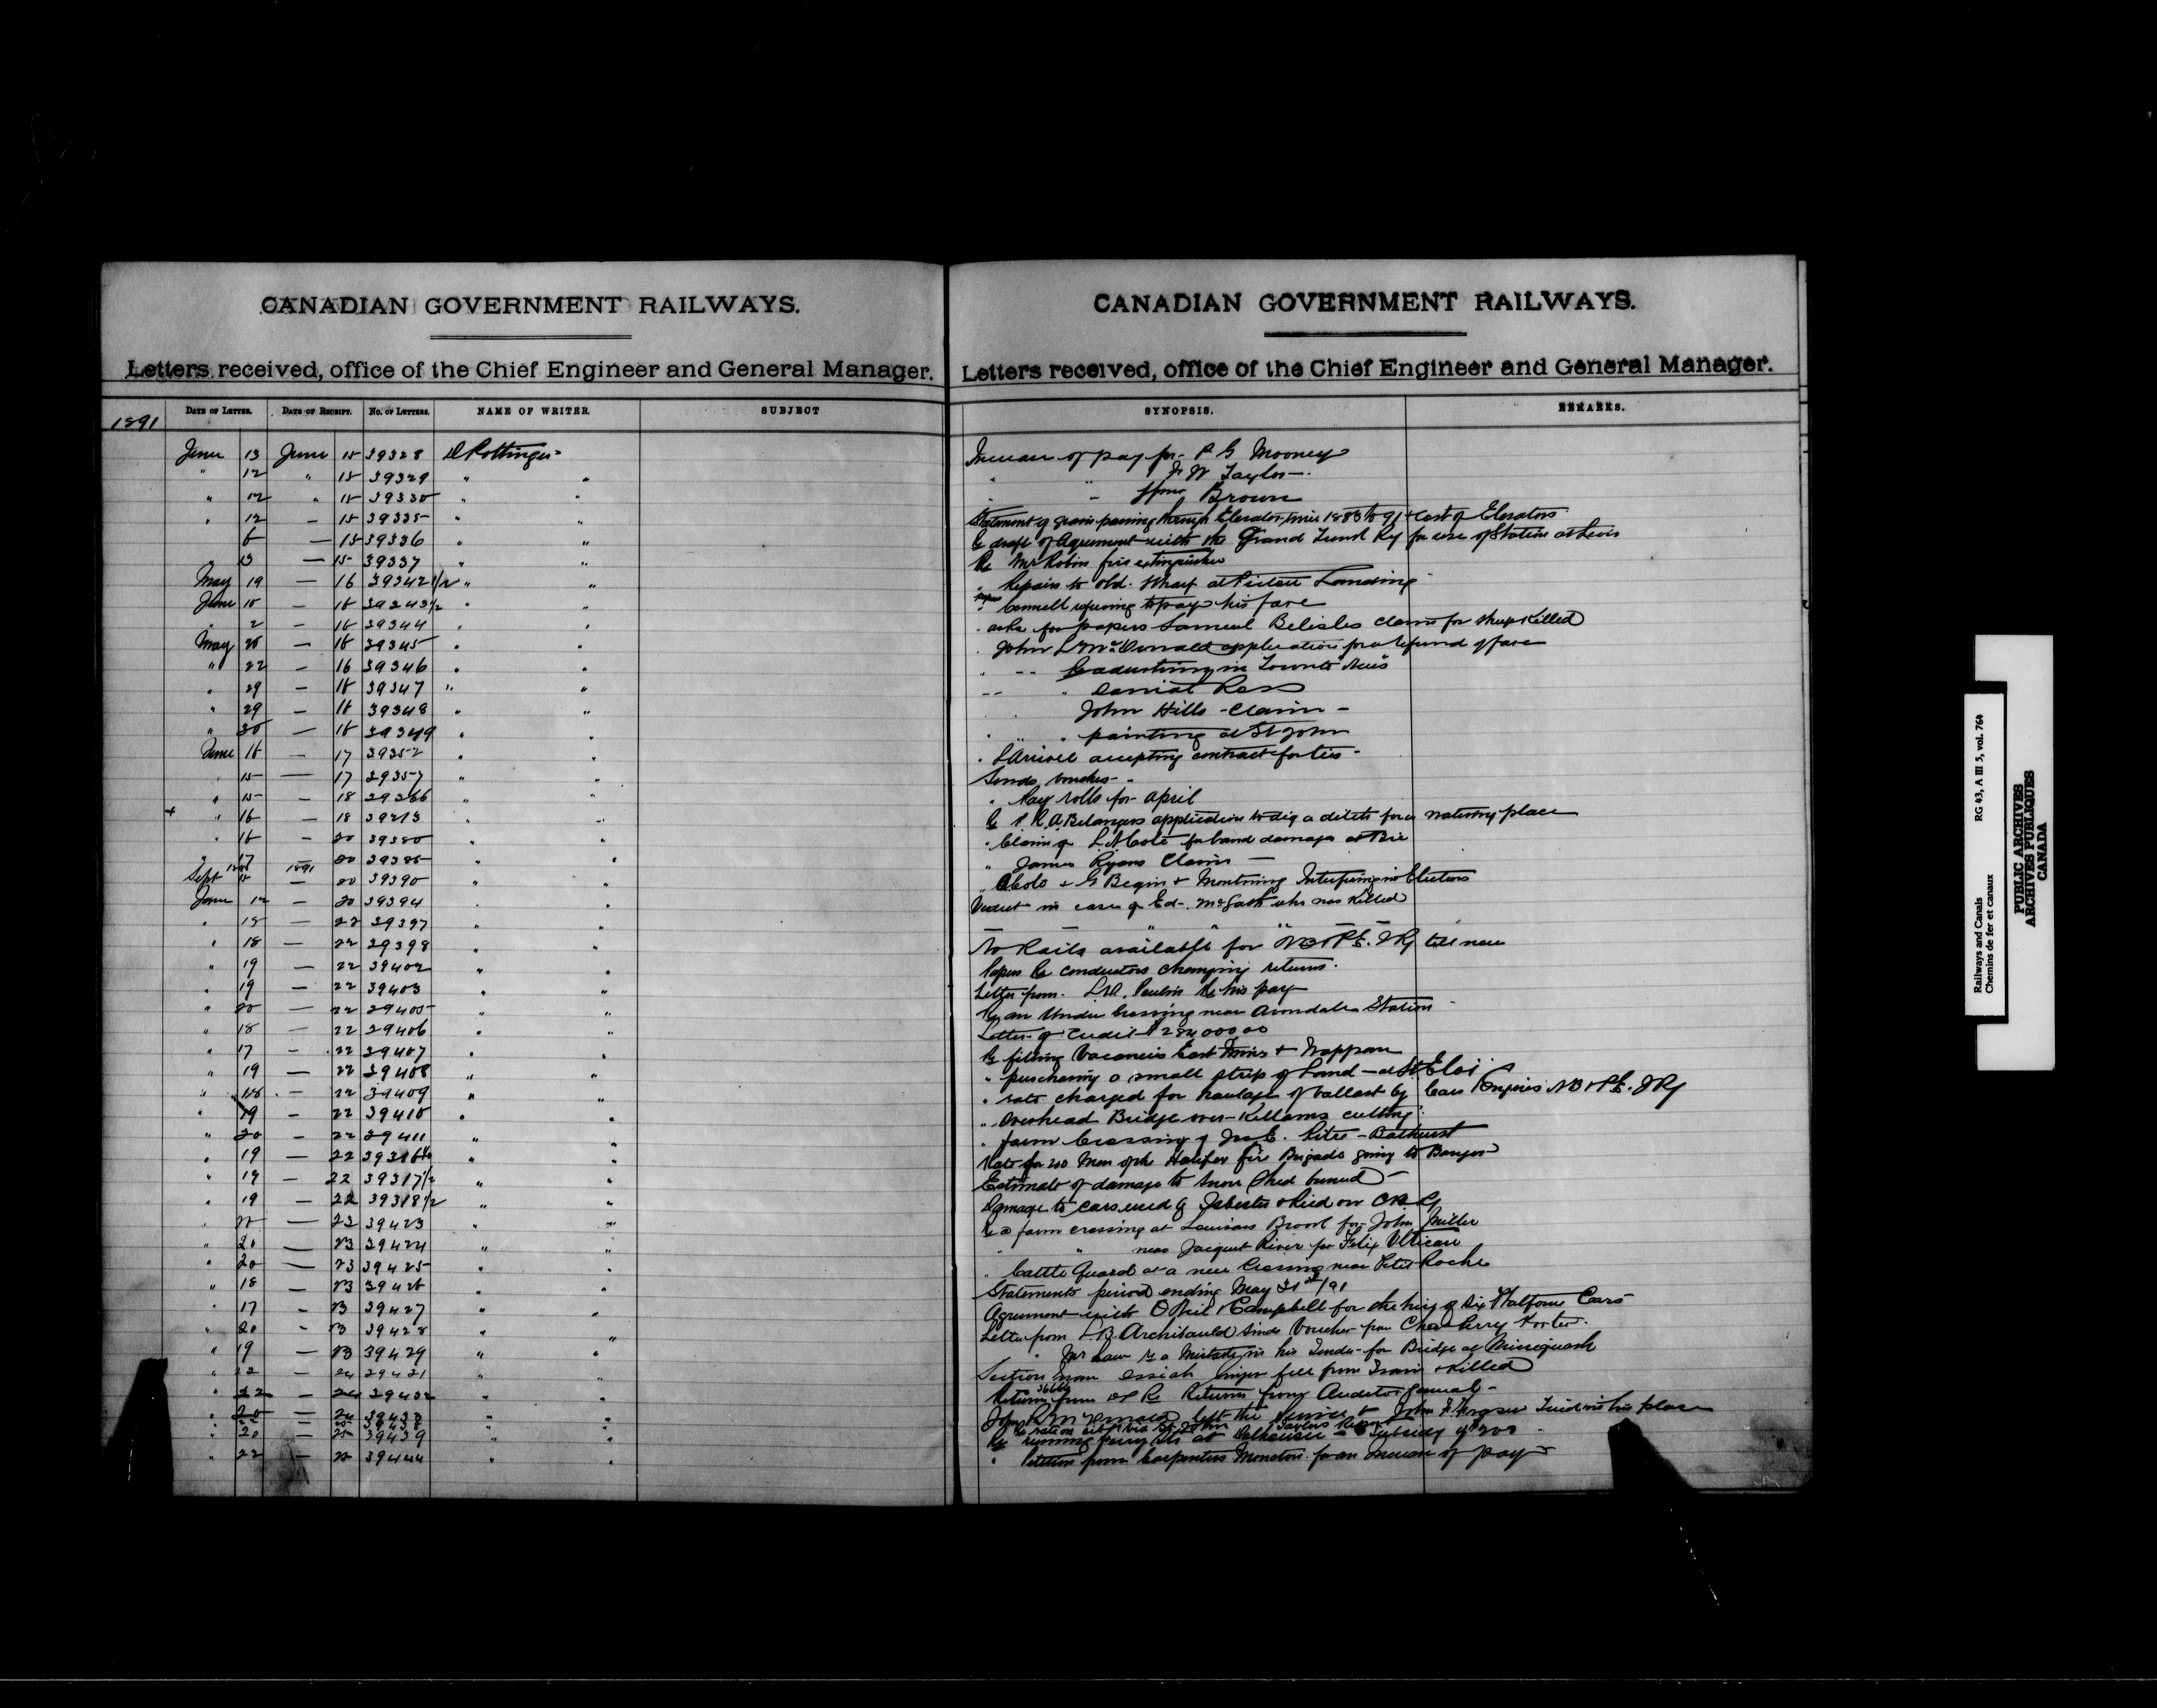 CANADIAN GOVERNMENT RAILWAYS.
Letters received, office of the Chief Engineer and General Manager.
DATE OF LETTER. DATE OF RECEIPT. No. OF LETTERS. NAME OF WRITER. SUBJECT
1891
June 13 June 15 39328 D Pottinger
" 12 " 15 39329 " "
" 12 " 15 39330 " "
" 12 — 15 39335 " "
6 — 15 39336 " "
" 13 — 15 39337 " "
May 19 — 16 39342 1/2 " "
June 15 — 16 39343 1/2 " "
" 2 — 16 39344 " "
May 28 — 16 39345 " "
" 22 — 16 39346 " "
" 29 — 16 39347 " "
" 29 — 16 39348 " "
" 30 — 16 39349 " "
June 16 — 17 39352 " "
" 15 — 17 39357 " "
" 15 — 18 39366 " "
+ " 16 — 18 39373 " "
" 16 — 20 39380 " "
" 17 — 20 39385 " "
Sept 1891 — 20 39390 " "
June 12 — 20 39394 " "
" 18 — 22 39397 " "
" 18 — 22 39398 " "
" 19 — 22 39402 " "
" 19 — 22 39403 " "
" 20 — 22 39405 " "
" 18 — 22 39406 " "
" 17 — 22 39407 " "
" 19 — 22 39408 " "
" 18 — 22 39409 " "
" 19 — 22 39410 " "
" 20 — 22 39411 " "
" 19 — 22 39316 1/2 " "
" 19 — 22 39317 1/2 " "
" 19 — 22 39318 1/2 " "
" 22 — 23 39423 " "
" 20 — 23 39424 " "
" 20 — 23 39425 " "
" 18 — 23 39426 " "
" 17 — 23 39427 " "
" 20 — 23 39428 " "
" 19 — 23 39429 " "
" 22 — 24 39431 " "
" 22 — 24 39432 " "
" 20 — 24 39433 " "
" 22 — 25 39438 " "
" 20 — 25 39439 " "
" 22 — 25 39444 " "
CANADIAN GOVERNMENT RAILWAYS.
Letters received, office of the Chief Engineer and General Manager.
SYNOPSIS. REMARKS.
Increase of pay for P G Mooney
" " J W Taylor
" " Brown
Statement of grain passing through Elevator since 1883 to 91 + cost of Elevators
Re draft of Agreement with the Grand Trunk Ry for use of Station at Levis
Re Mr Robin fire extinguisher
" Repairs to old Wharf at Pictou Landing
" Connell refusing to pay his fare
" asks for papers Samuel Belisles claim for sheep killed
" John McDonald application for a refund of fare
" " advertising in Toronto News
" " Daniel Ross
" " John Hills - Claim -
" " painting at St John
" accepting contract for ties
Sends vouchers
" Pay rolls for April
Re Belangers application to dig a ditch for a watering place
" Claim of Coté for land damages at Bic
" James Ryans Claim —
" + G Begin + Montminy Interfering in Elections
Verdict in case of Ed. McGath who was killed
" " " "
No Rails available for NB & P E. I Ry till new
Papers Re conductors changing returns.
Letter from Paulin Re his pay
Re an Under Crossing near Avondale Station
Letter of Credit $284000 00
Re filling Vacancies East Mines + Nappan
" purchasing a small strip of land — at St Eloi
" rate charged for haulage of ballast by Cars Empires NB & P E. I Ry
" Overhead Bridge over Killams cutting
" farm Crossing of Jos E. Pitre - Bathurst
Rate for 200 Men of the Halifax fire Brigade going to Bangor
Estimate of damage to Snow Shed burned
Damage to cars used by Isbester & Reid on CB Ry
Re a farm crossing at Louisons Brook for John Miller
" " near Jacquet River for Felix
" Cattle Guard at a new Crossing near Peter Roche
Statements period ending May 31st/91
Agreement with O'Neil & Campbell for the hire of six Platform Cars
Letter from Archibauld sends Voucher from Chas Perry Porter
" re a Mistake in his Tender for Bridge at Missiguash
Section man fell from Train & killed
Returns from Re Returns from Auditor General
John left the Service & John F Fraser in his place
Re running ferry at Dalhousie — Subsidy of $200
" Petition from Carpenters Moncton for an increase of pay
Railways and Canals
Chemins de fer et canaux
RG 43, A III 5, vol. 764
PUBLIC ARCHIVES
ARCHIVES PUBLIQUES
CANADA